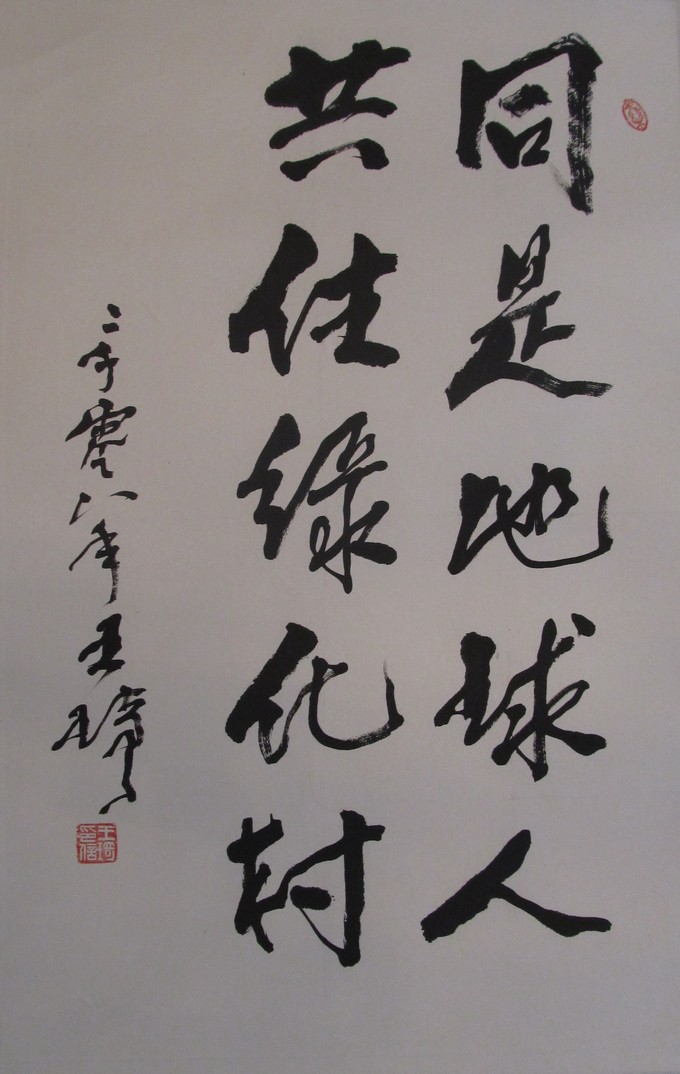 同是地球人
共住綠化村
二千零八年王琦
王琦信印